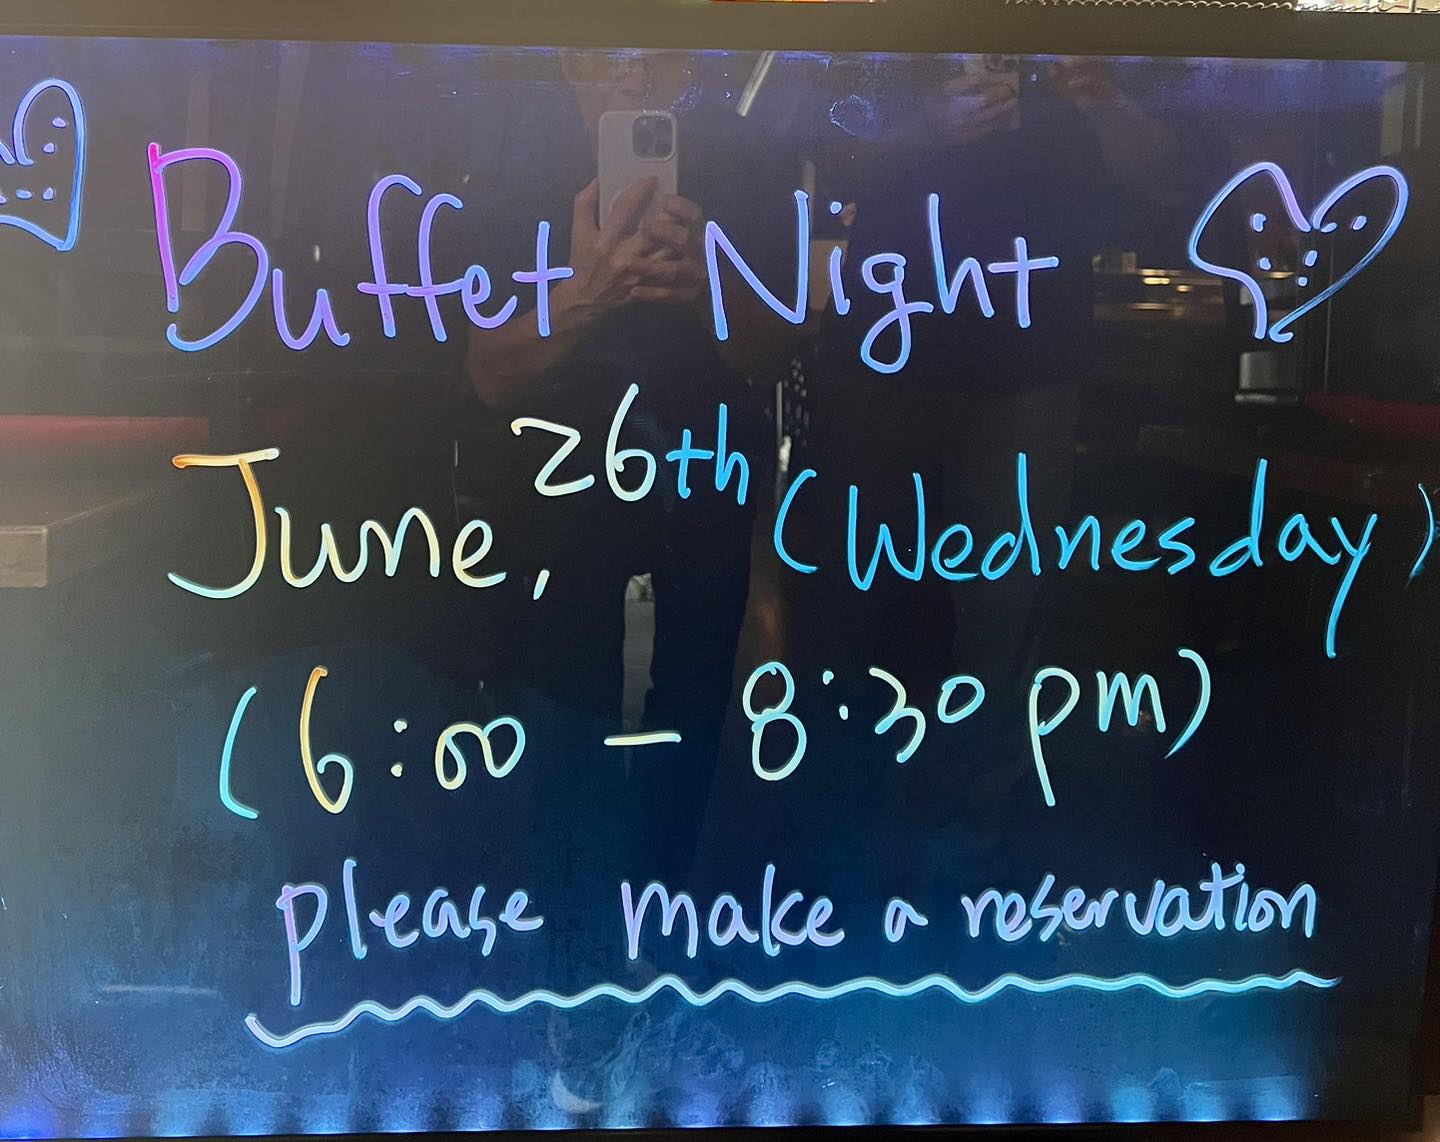 Buffet Night
June, 26th (Wednesday)
(6:00 - 8:30 pm)
please make a reservation